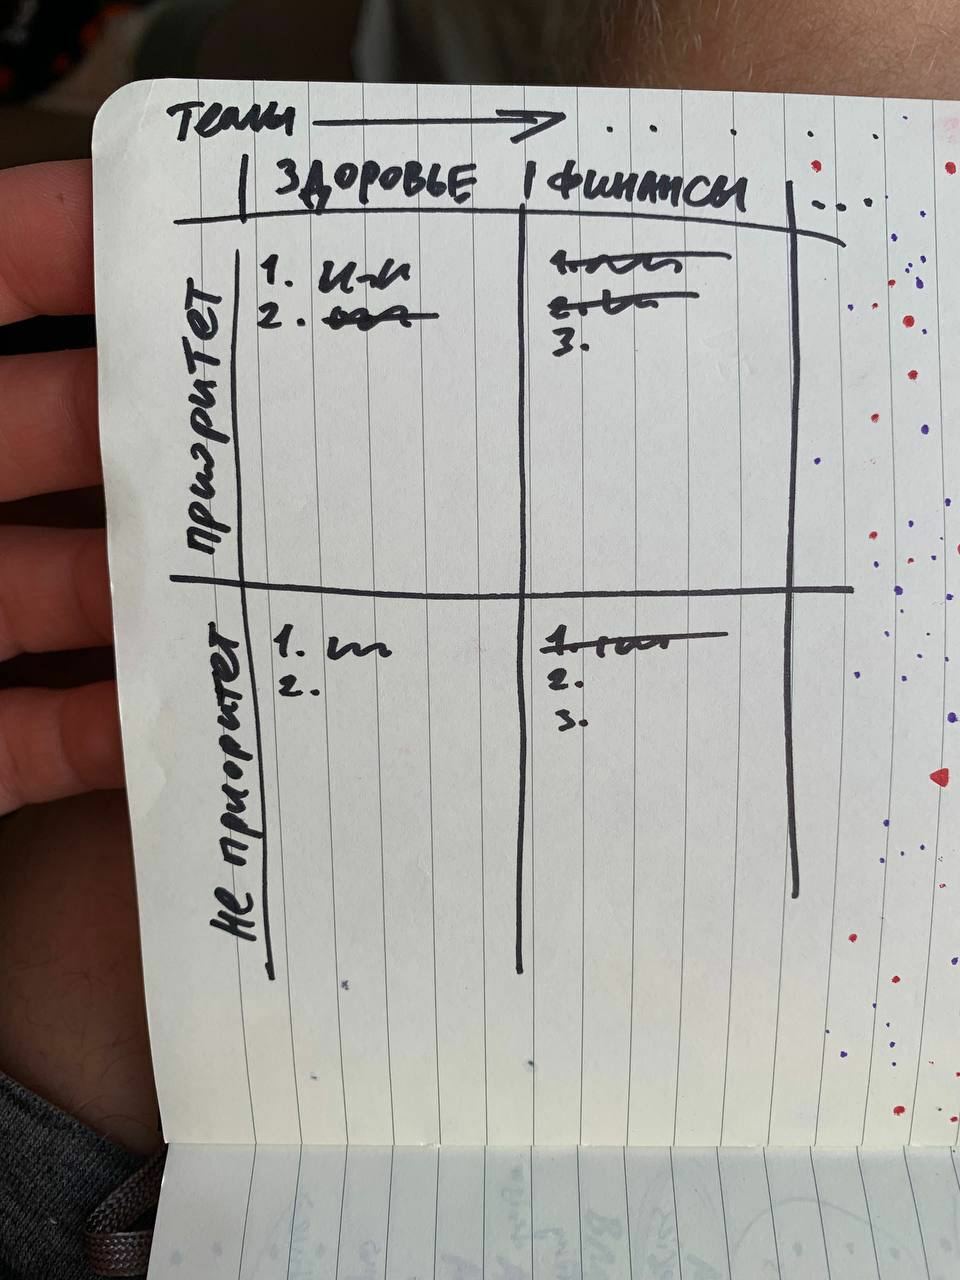 Темы
Здоровье Финансы ...
Приоритет
1.
2.
3.
Не приоритет
1.
2.
1.
2.
3.